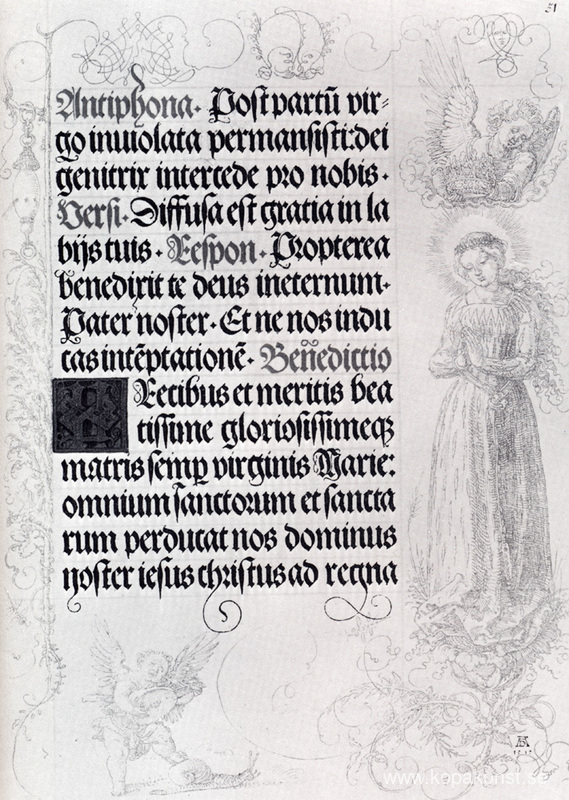 51
Antiphona. Post partū vir=
go inuiolata permansisti:dei
genitrix intercede pro nobis.
Versi. Diffusa est gratia in la
bijs tuis. Respon. Propterea
benedixit te deus ineternum.
Pater noster. Et ne nos indu
cas intēptationē. Beñedictio
PRecibus et meritis bea
tissime gloriosissimeqꝫ
matris semꝑ virginis Marie:
omnium sanctorum et sancta
rum perducat nos dominus
noster iesus christus ad regna
AD
1515
www.kopakunst.se